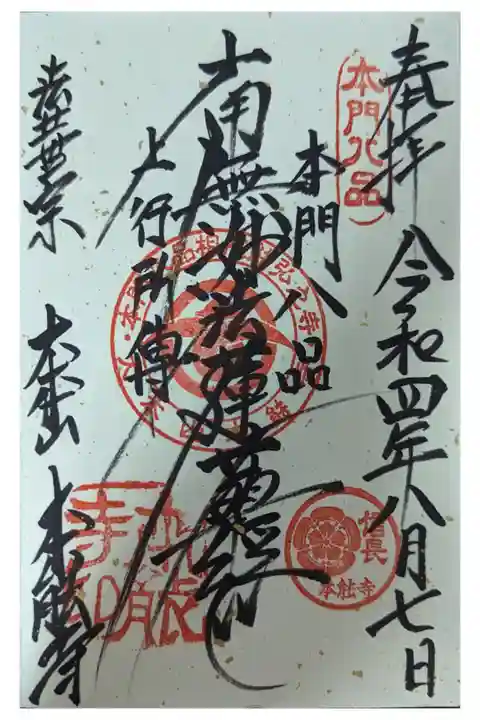 奉拝 令和四年八月七日
本門八品
本門八品
南無妙法蓮華経
上行所傳
法華宗 大本山 本能寺
信長
本能寺
本能寺印